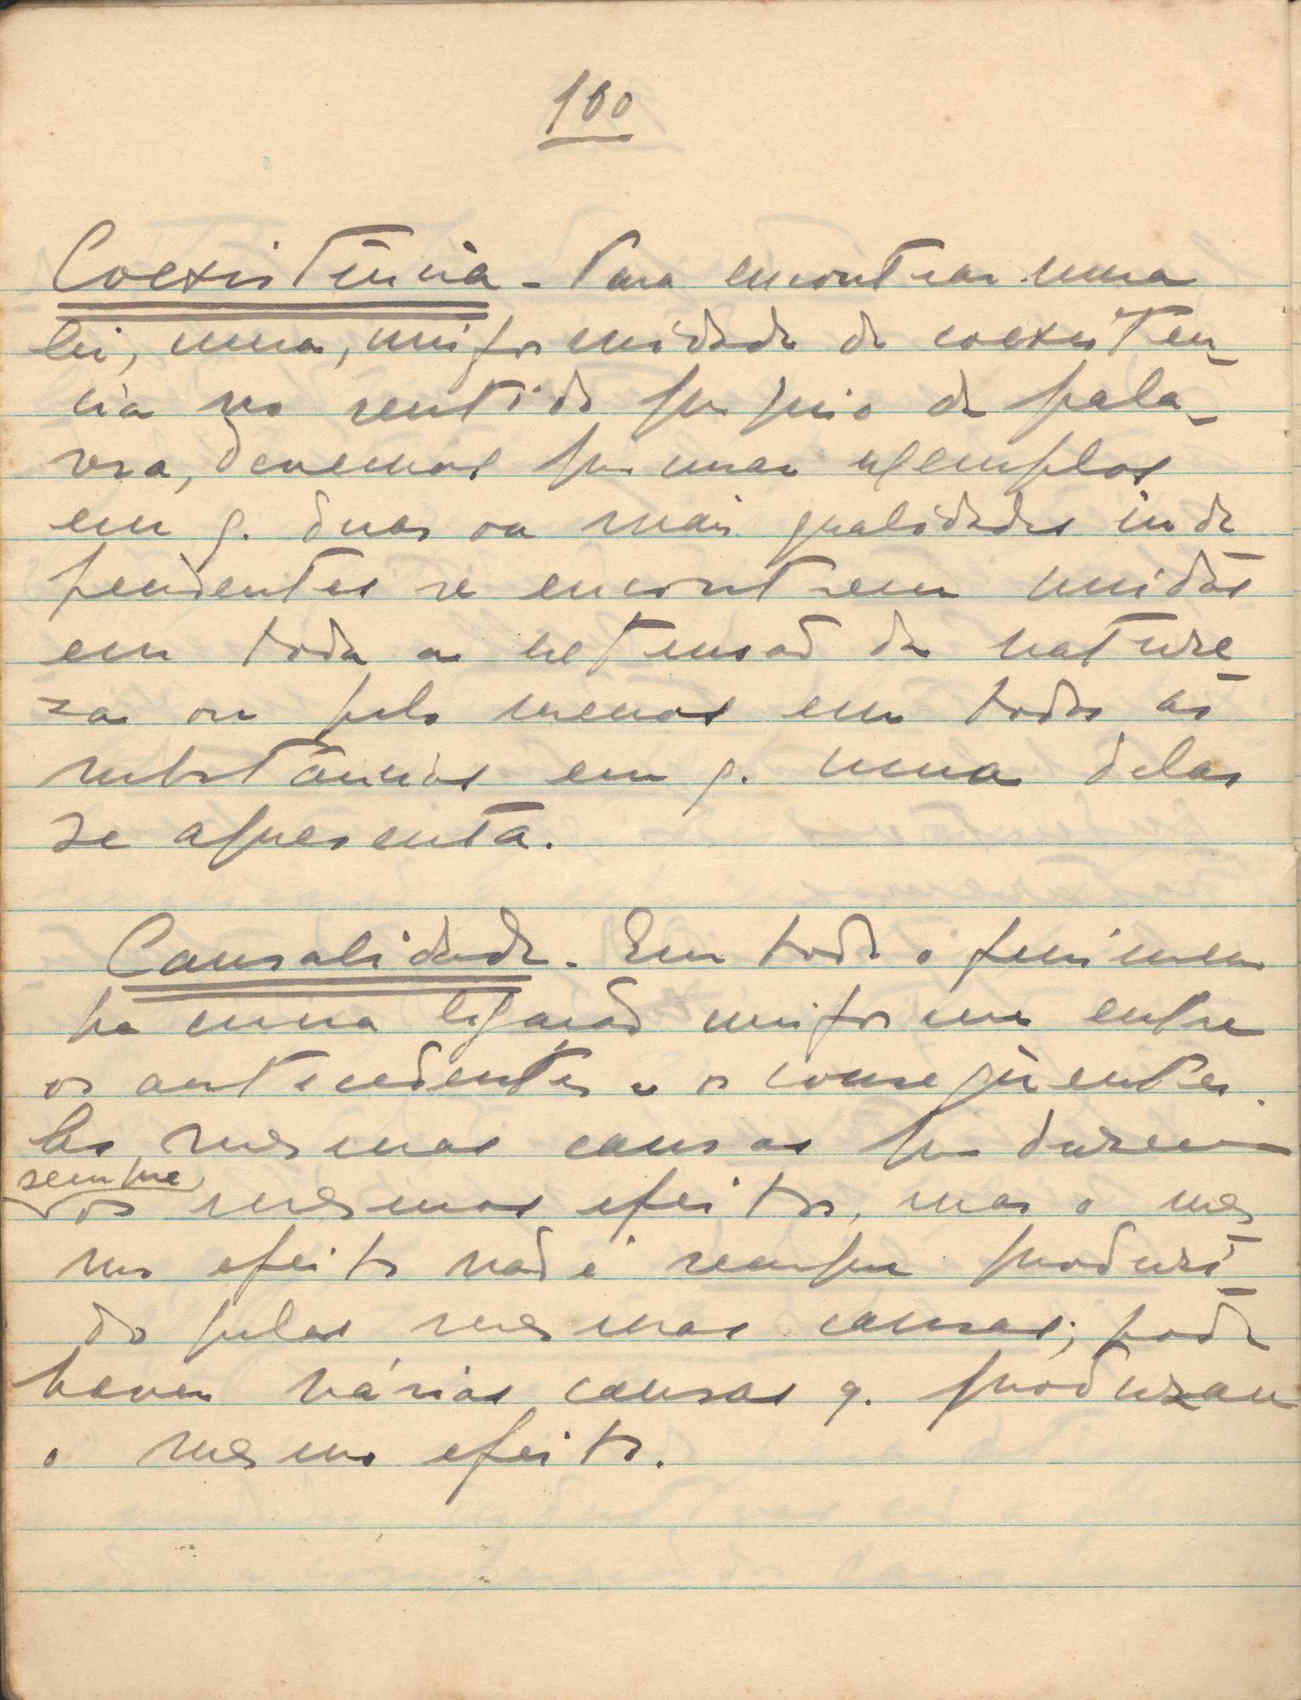 100
Coexistência - Para encontrar uma
lei, uma, uniformidade de coexisten-
cia no sentido proprio da pala-
vra, devemos procurar exemplos
em q. duas ou mais qualidades inde
pendentes se encontrem unidas
em toda a extensão da nature
za ou pelo menos em todas as
substâncias em q. uma delas
se apresenta.
Causalidade. Em todo o fenimeno
ha uma ligação uniforme entre
os antecedentes e os conseqüentes.
As mesmas causas produzem
sempre
os mesmos efeitos, mas o mes
mo efeito não é sempre produzi
do pelas mesmas causas; pode
haver várias causas q. produzam
o mesmo efeito.